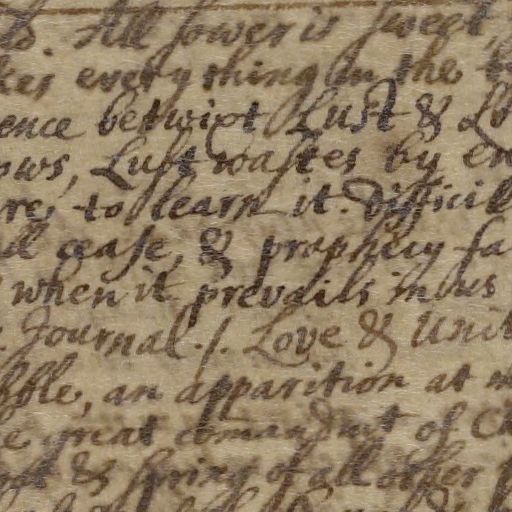 All sower is sweet,
every thing in the
ence betwixt Lust & Lo
ows, Lust wastes by en
re, to learn it. Difficil
cease, & prophecy fa
when it prevails in us
Journal. /. Love & Unit
an apparition at
great comandmt of
& spring of all other